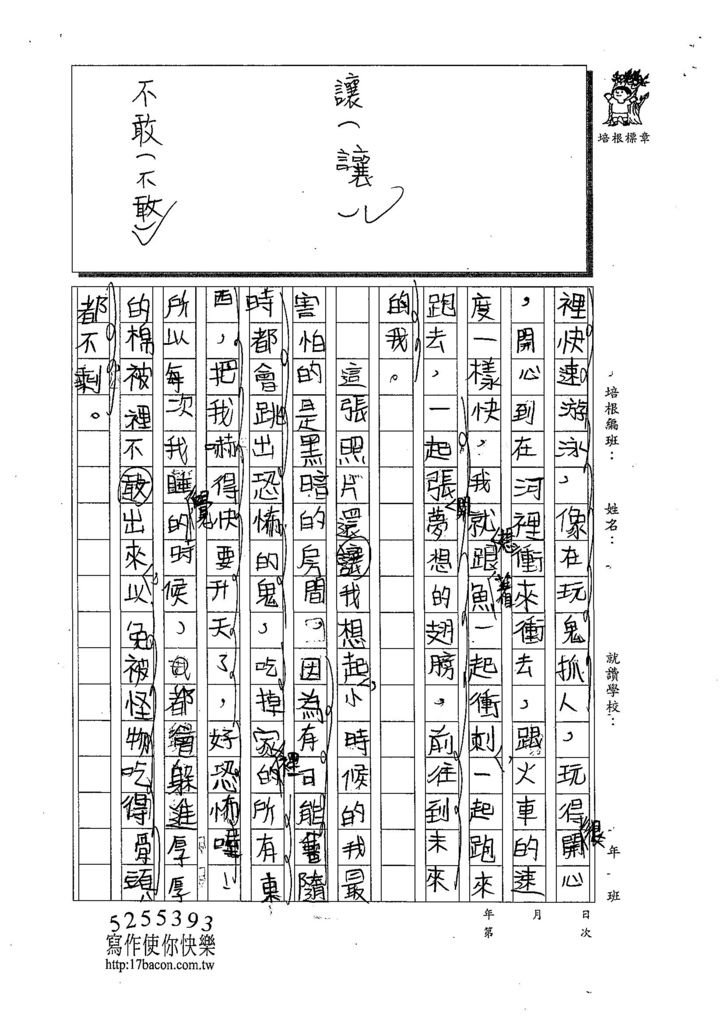 讓(讓)
不敢(不敢)
培根標章
培根編班：
姓名：
就讀學校：
年 班
日次
月
年第
裡快速游泳，像在玩鬼抓人，玩得很開心
，開心到在河裡衝來衝去，跟火車的速
度一樣快，我就想跟著魚一起衝刺，一起跑來
跑去，一起張開夢想的翅膀，前往到未來
的我。
這張照片還讓我想起，小時候的我最
害怕的是黑暗的房間，因為有可能會隨
時都會跳出恐怖的鬼，吃掉家裡的所有東
西，把我嚇得快要升天了，好恐怖哩！
所以每次我睡覺的時候，我都會躲進厚厚
的棉被裡不敢出來，以免被怪物吃得骨頭
都不剩。
5255393
寫作使你快樂
http:17bacon.com.tw